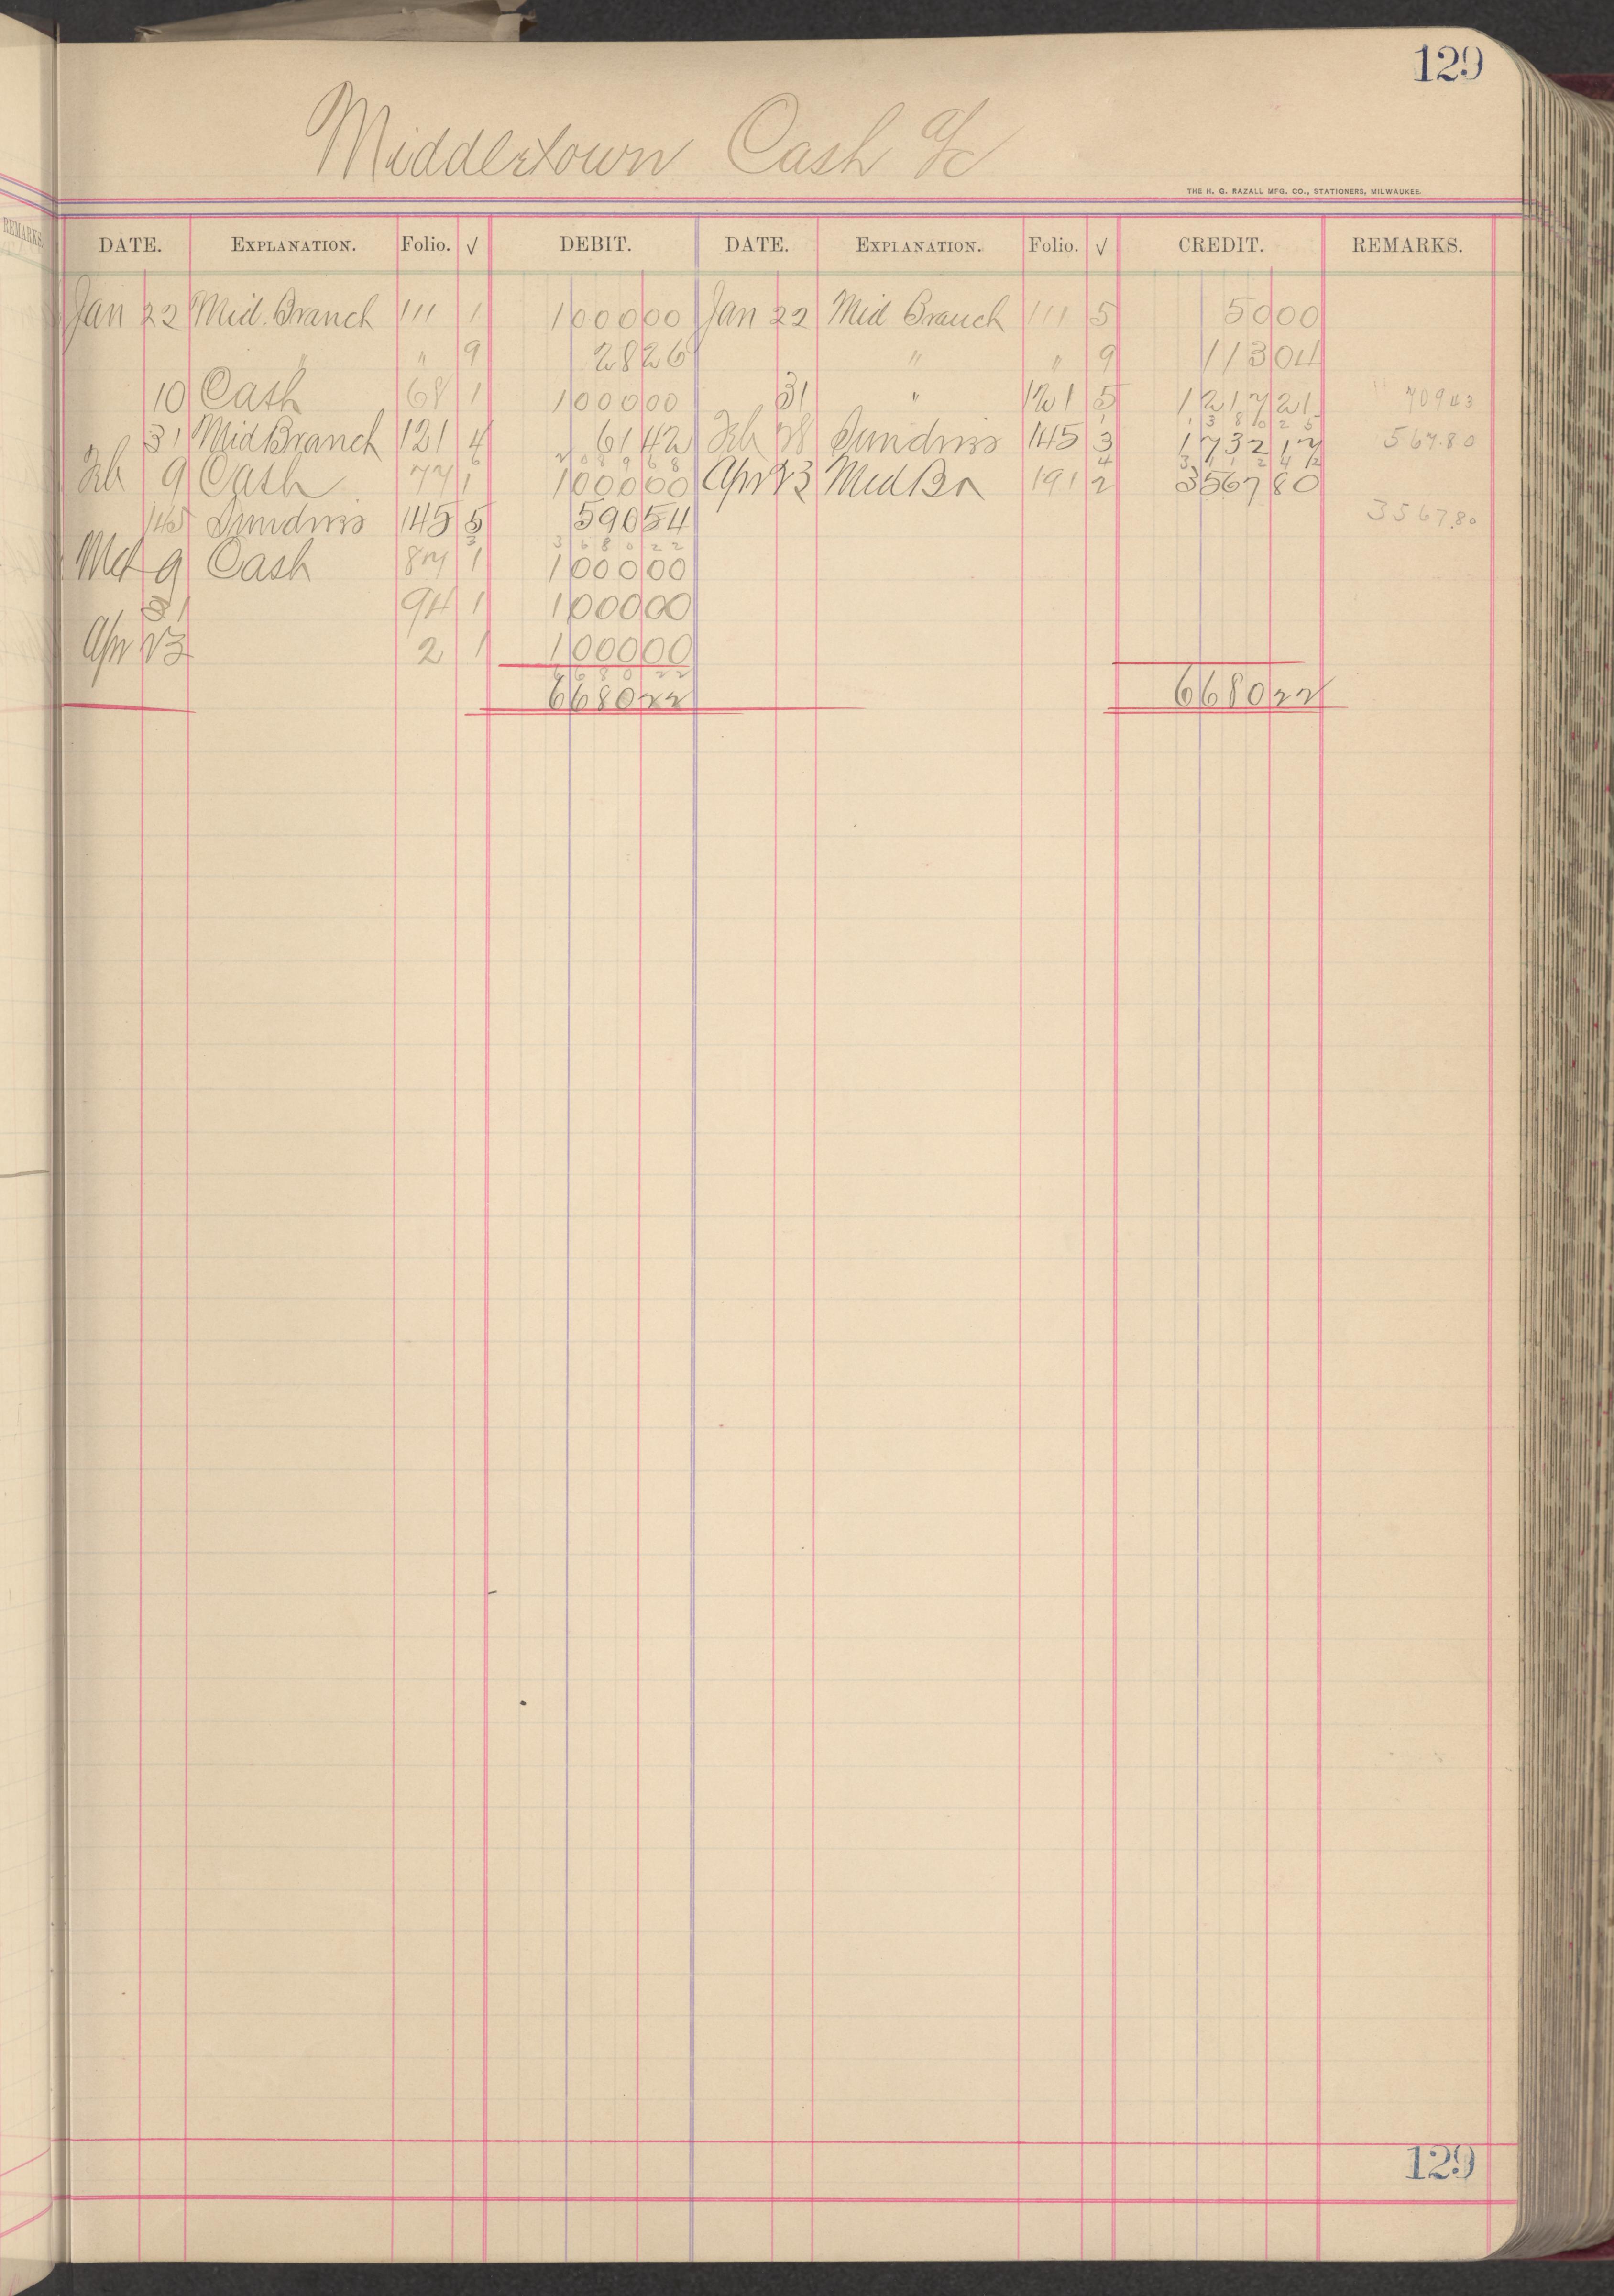 129
Middletown Cash a/c
THE H. G. RAZALL MFG. CO., STATIONERS, MILWAUKEE.
REMARKS
DATE. EXPLANATION. Folio. √ DEBIT. DATE. EXPLANATION. Folio. √ CREDIT. REMARKS.
Jan 22 Mid. Branch 111 1 1000 00 Jan 22 Mid Branch 111 5 50 00
" " 9 28 26 " " 9 113 04
10 Cash 68 1 1000 00 31 " 121 5 1217 21 709 43
1 3 8 0 2 5
31 Mid Branch 121 4 61 42 Feb 28 Sundries 145 3 1732 17 567.80
2 0 8 9 6 8 3 1 1 2 4 2
Feb 9 Cash 77 1 1000 00 Apr 23 Mid Br 191 2 3567 80
28 Sundries 145 5 590 54 3567.80
3 6 8 0 2 2
Mch 9 Cash 87 1 1000 00
31 94 1 1000 00
Apr 23 2 1 1000 00
6 6 8 0 2 2
6680 22 6680 22
129